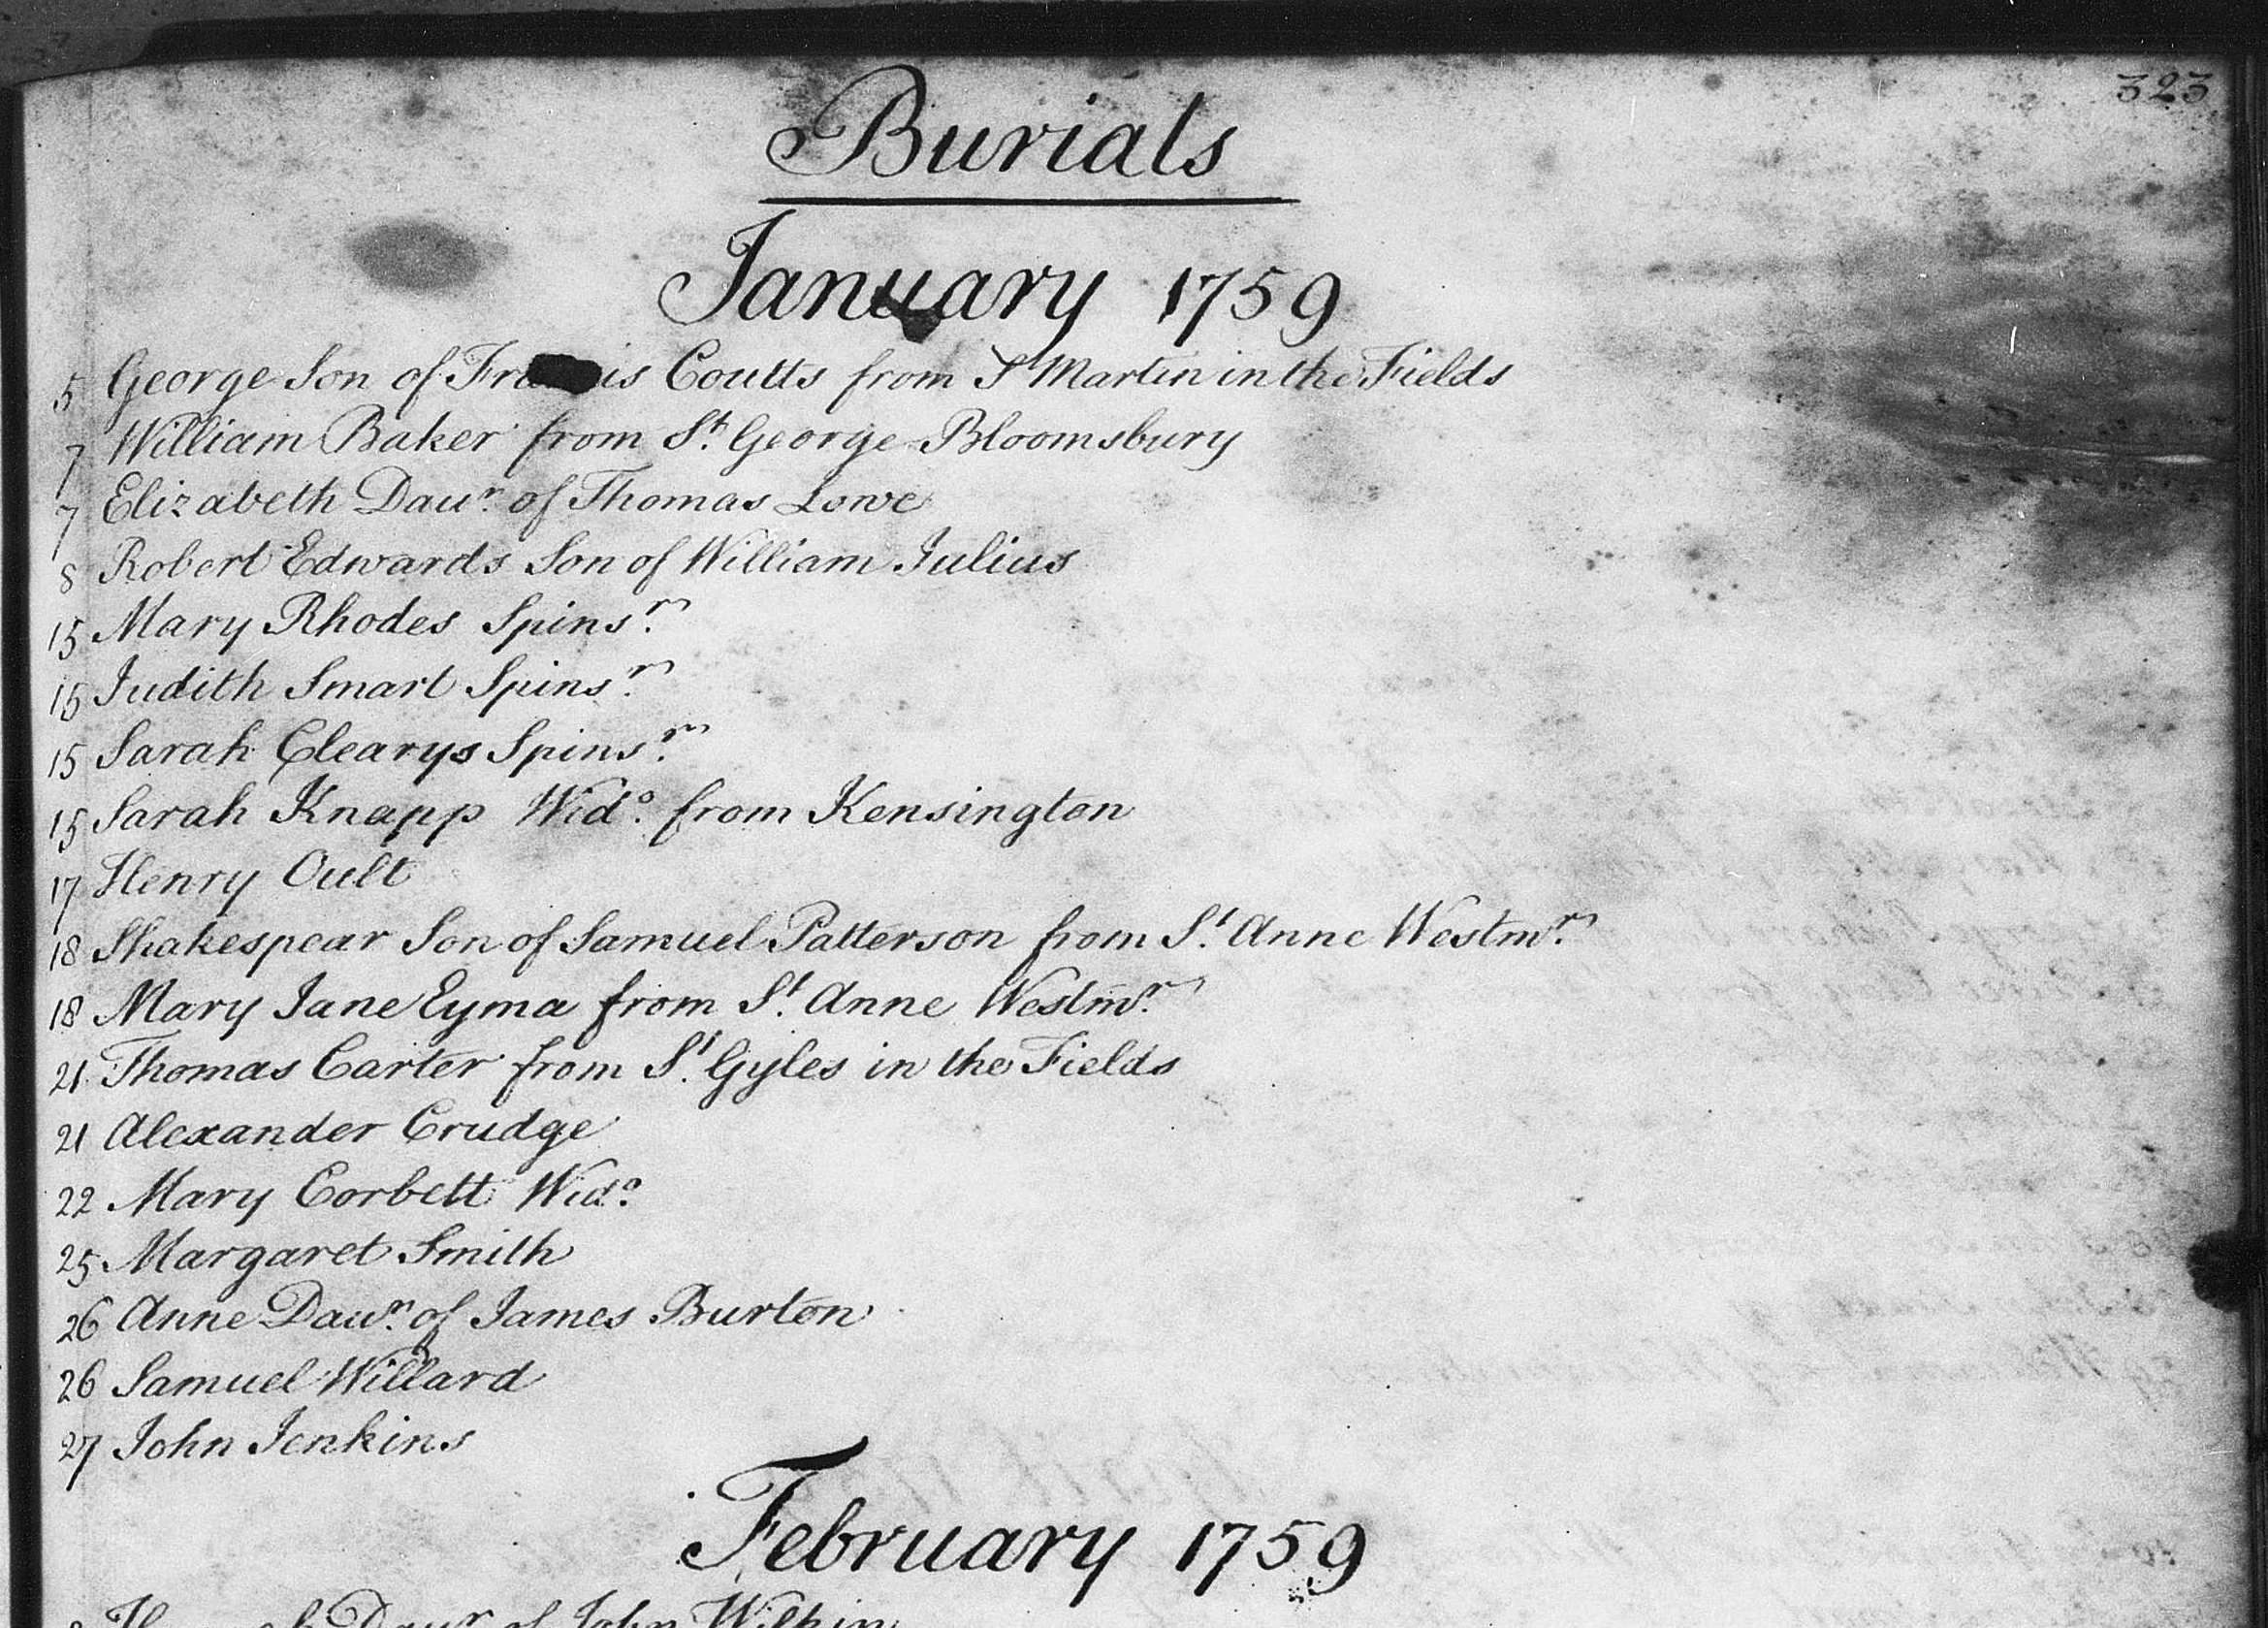 323
Burials
January 1759
5 George Son of Francis Coutts from St Martin in the Fields
7 William Baker from St. George Bloomsbury
7 Elizabeth Daur. of Thomas Lowe
8 Robert Edwards Son of William Julius
15 Mary Rhodes Spinsr.
15 Judith Smart Spinsr.
15 Sarah Clearys Spinsr.
15 Sarah Knapp Wido. from Kensington
17 Henry Oult
18 Shakespear Son of Samuel Patterson from St. Anne Westmr.
18 Mary Jane Eyma from St. Anne Westmr.
21 Thomas Carter from St. Gyles in the Fields
21 Alexander Crudge
22 Mary Corbett Wido.
25 Margaret Smith
26 Anne Daur. of James Burton
26 Samuel Willard
27 John Jenkins
February 1759
Daur of John Wilkin